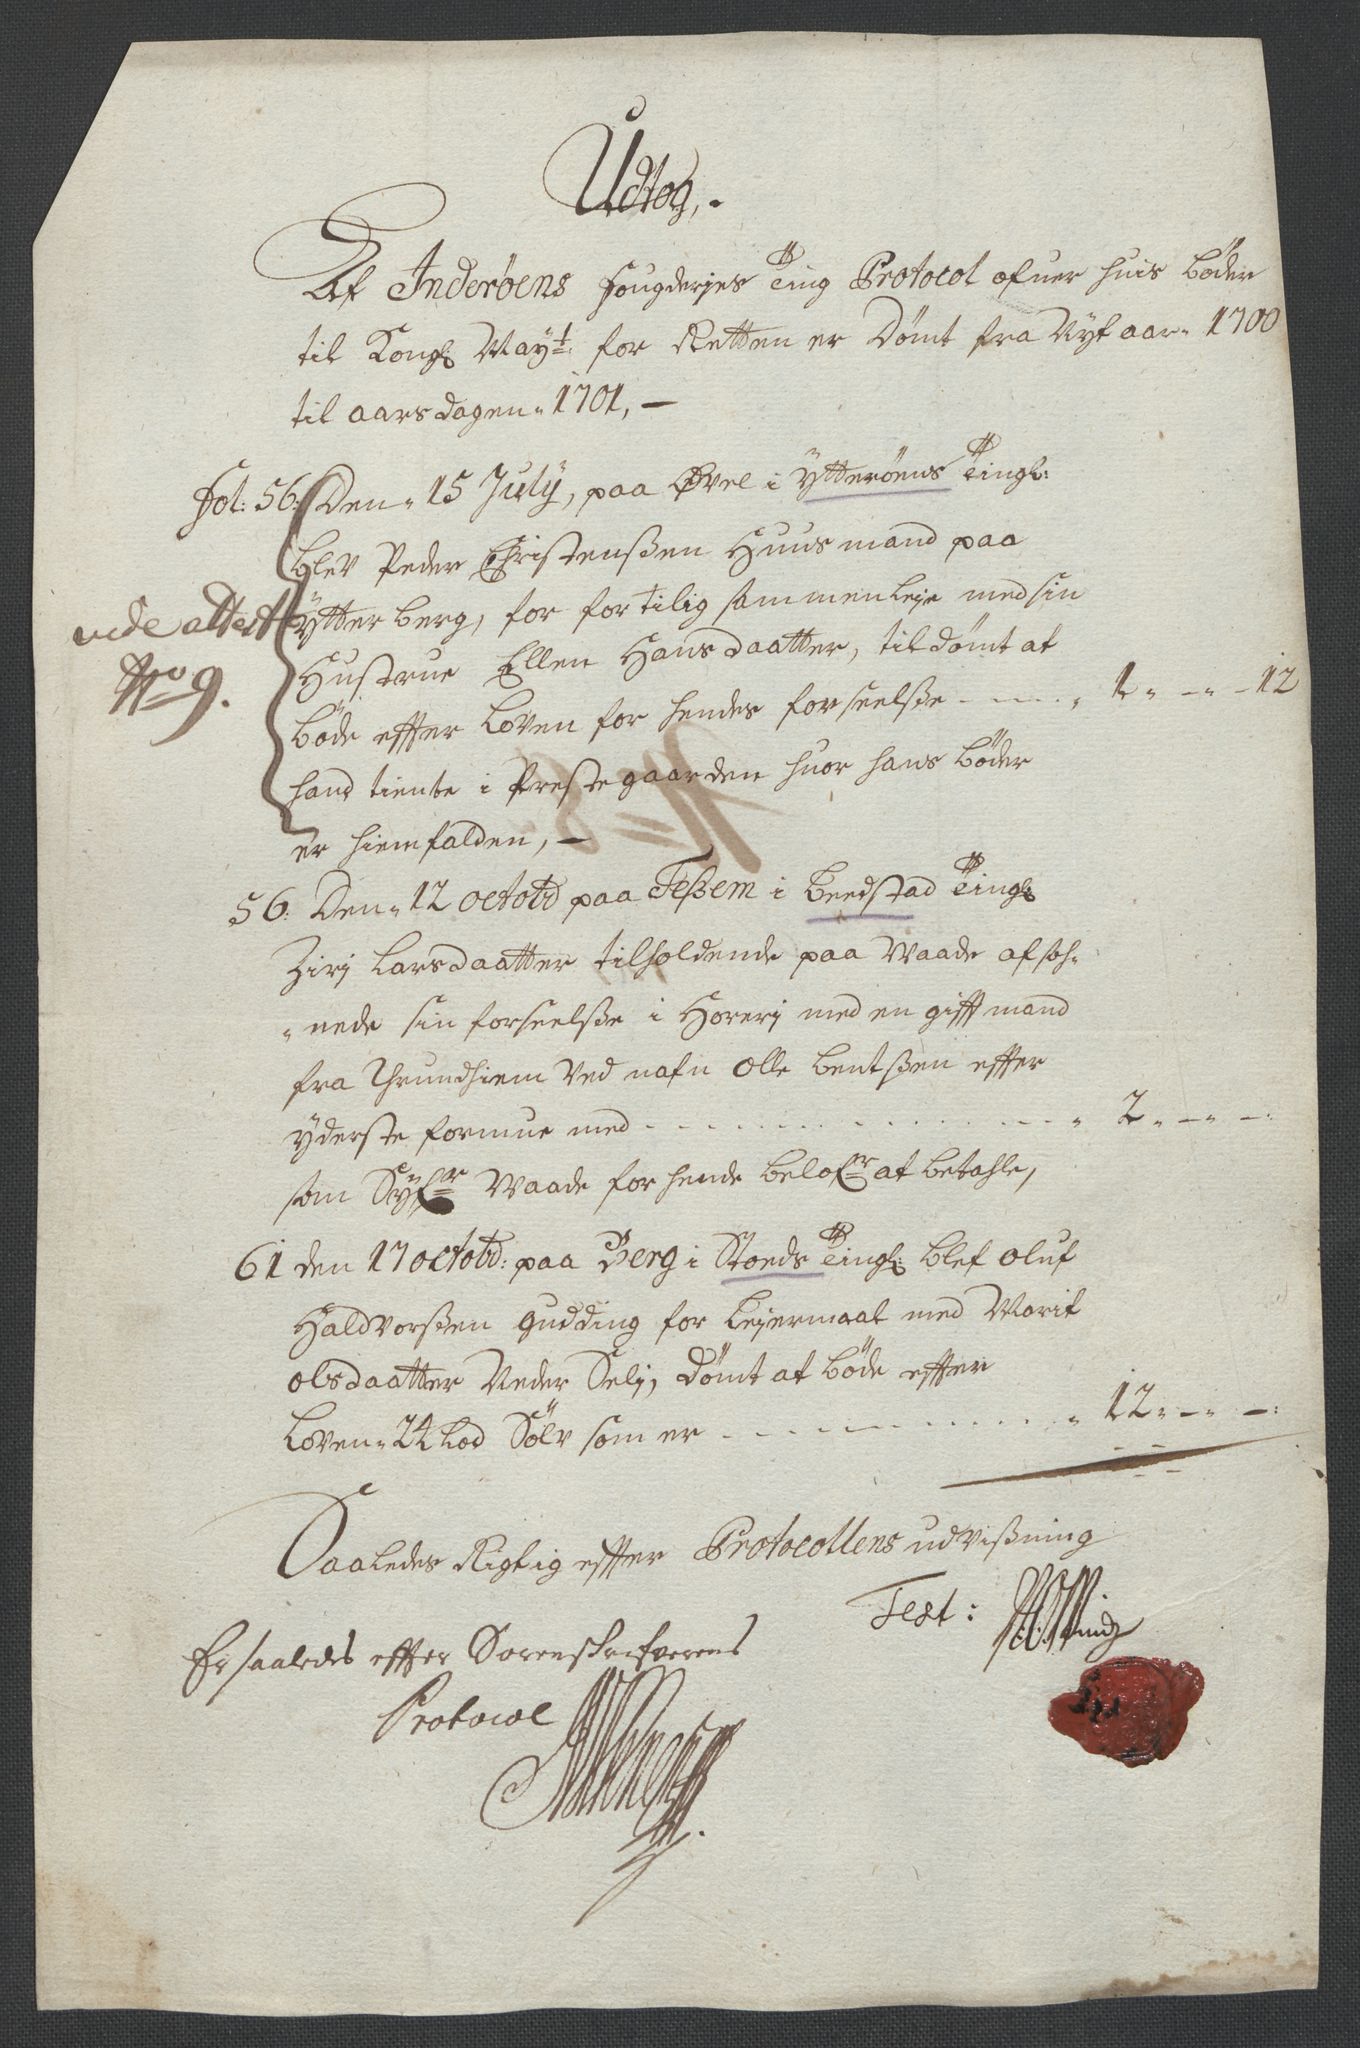 Udtog,.
Af Inderøens fougderjes Ting Protocol ofuer huis bøder
til Kongl May:t for Retten er Dømt fra Nyt aar 1700
til aarsdagen 1701, —
fol: 56: Den 15 July, paa Øvel i Ytterøens Tingl:
blev Peder Christenßen Huusmand paa
Ytterberg, for for tilig sammenleje med sin
vide attest
No 9.
Hustrue Ellen Hansdaatter, til dømt at
bøde effter Loven for hendes forseelsße - - - 1 - - 12
hand tiente i Prestegaarden huor hans bøder
er hiemfalden, —
56: Den 12 octobr paa Feßem i Beedstad Tingl:
Zirj Larsdaatter tilholdende paa Waade afsoh-
nede sin forseelsße i Horerj med en gifft mand
fra Thrundhiem Ved nafn Olle bentßen effter
yderste formue med - - - 2 - -
som Waade for hende belofr at betahle,
61 den 17 octobr: paa Berg i Stoeds Tingl: blef oluf
Haldvorßen Gudding for Leyermaal med Marit
olsdaatter Neder Selj, Dømt at bøde effter
Loven 24 Lod Sølv som er - - - 12 - -
Saaledes Rigtig effter Protocollens udvißning
Test:
Er saaledes effter Sorenskrifverens
Protocol